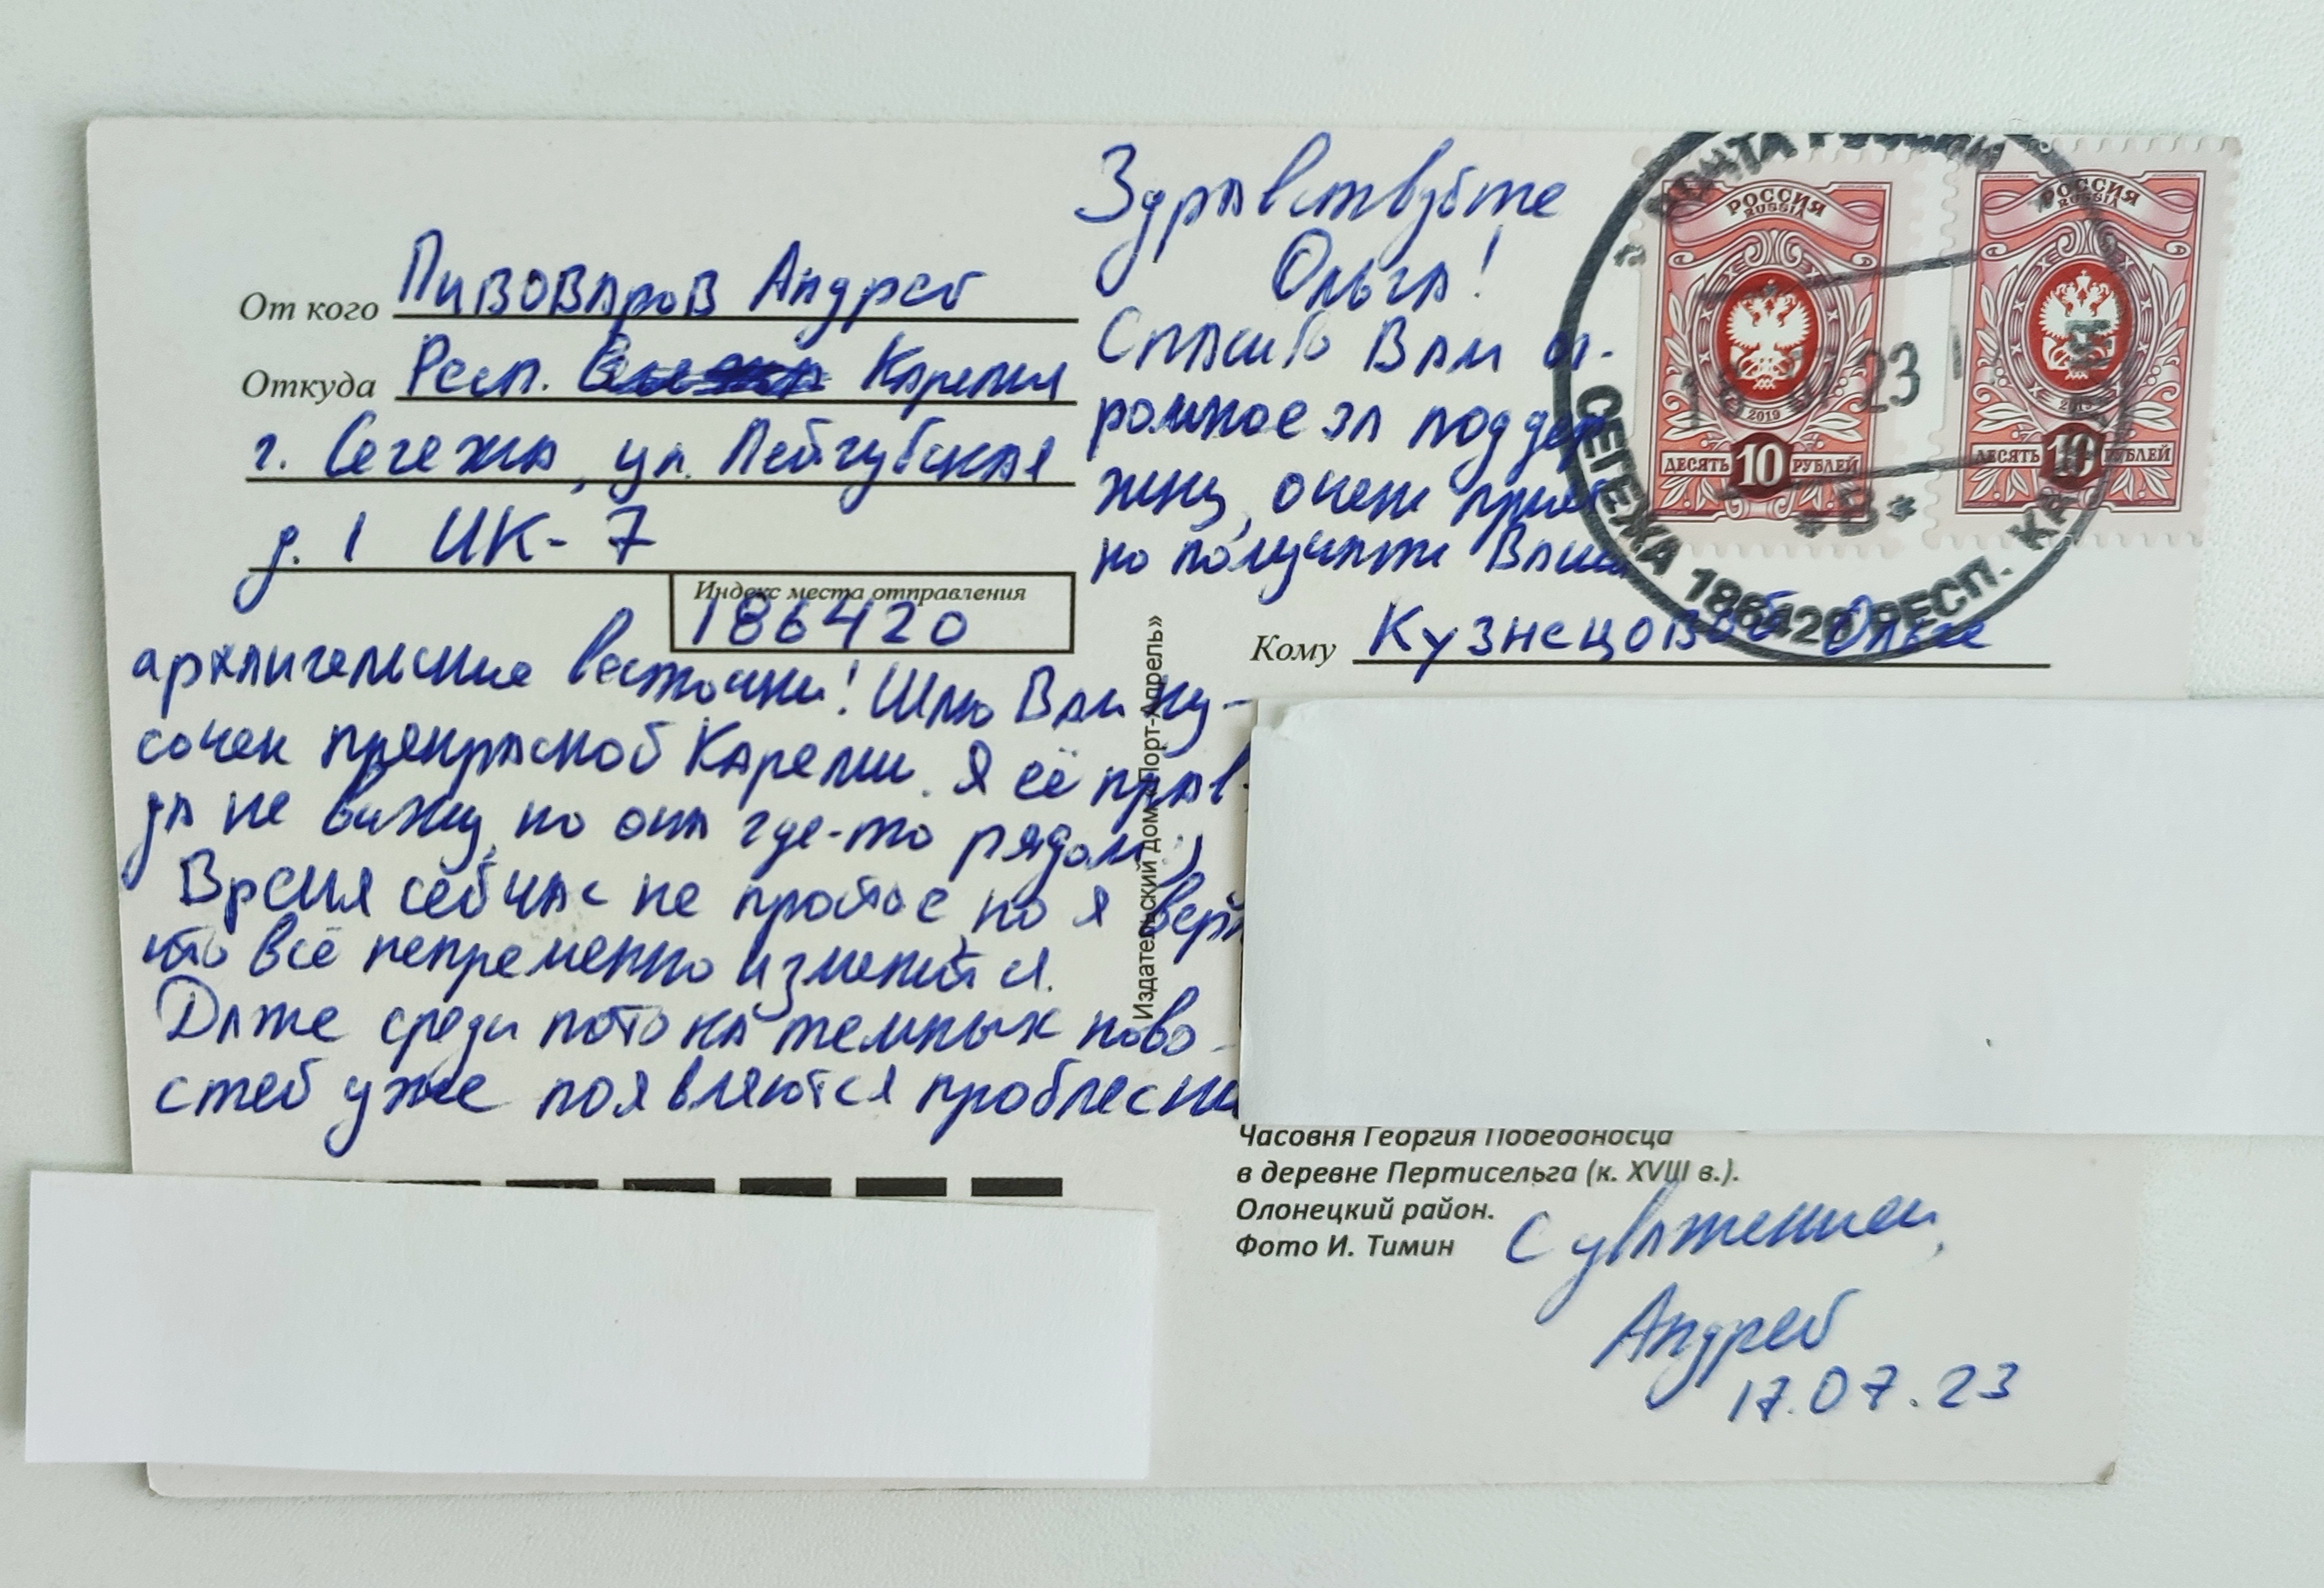 От кого Пивоваров Андрей
Откуда Респ. Карелия
г. Сегежа, ул. Лейгубская
д. 1 ИК-7
Индекс места отправления
186420
Здравствуйте
Ольга!
Спасибо Вам ог-
ромное за поддер
жку, очень прият
но получать Ваши
архангельские весточки! Шлю Вам ку-
сочек прекрасной Карелии. Я её прав-
да не вижу, но она где-то рядом :)
Время сейчас не простое, но я верю
что всё непременно изменится.
Даже среди потока темных ново-
стей уже появляются проблески
РОССИЯ
RUSSIA
2019
ДЕСЯТЬ 10 РУБЛЕЙ
РОССИЯ
RUSSIA
2019
ДЕСЯТЬ 10 РУБЛЕЙ
ПОЧТА
23
*В*
СЕГЕЖА 186420 РЕСП.
Кому Кузнецовой Ольге
Издательский дом «Порт-Апрель»
Часовня Георгия Победоносца
в деревне Пертисельга (к. XVIII в.).
Олонецкий район.
Фото И. Тимин
С уважением,
Андрей
17.07.23